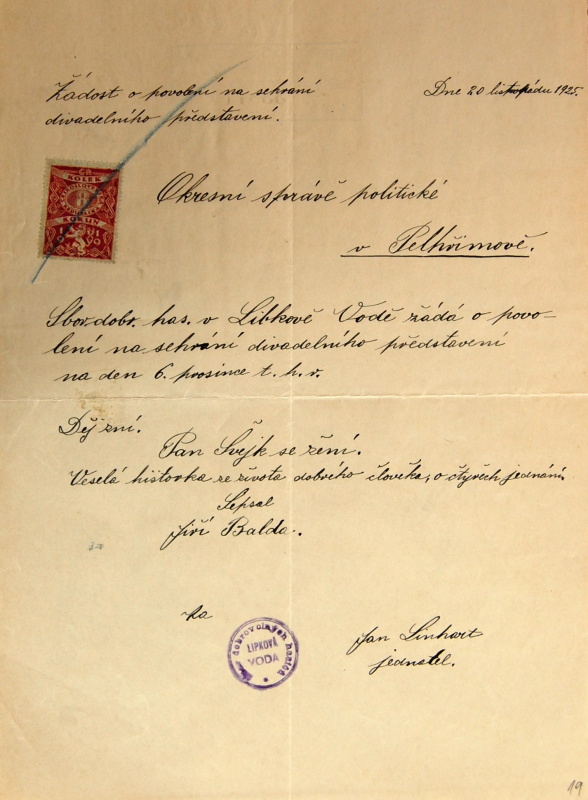 Žádost o povolení na sehrání
divadelního představení.
Dne 20 listopádu 1925.
KOLEK
KORUN
Okresní správě politické
v Pelhřimově.
Sbor dobr. has. v Libkově Vodě žádá o povo-
lení na sehrání divadelního představení
na den 6. prosince t. h. r.
Děj zní.
Pan Švejk se žení.
Veselá historka ze života dobrého člověka, o čtyrech jednání.
Sepsal
Jiří Balda.
Za
dobrovolných hasičů
LIPKOVÁ
VODA
Jan Linhart
jednatel.
19